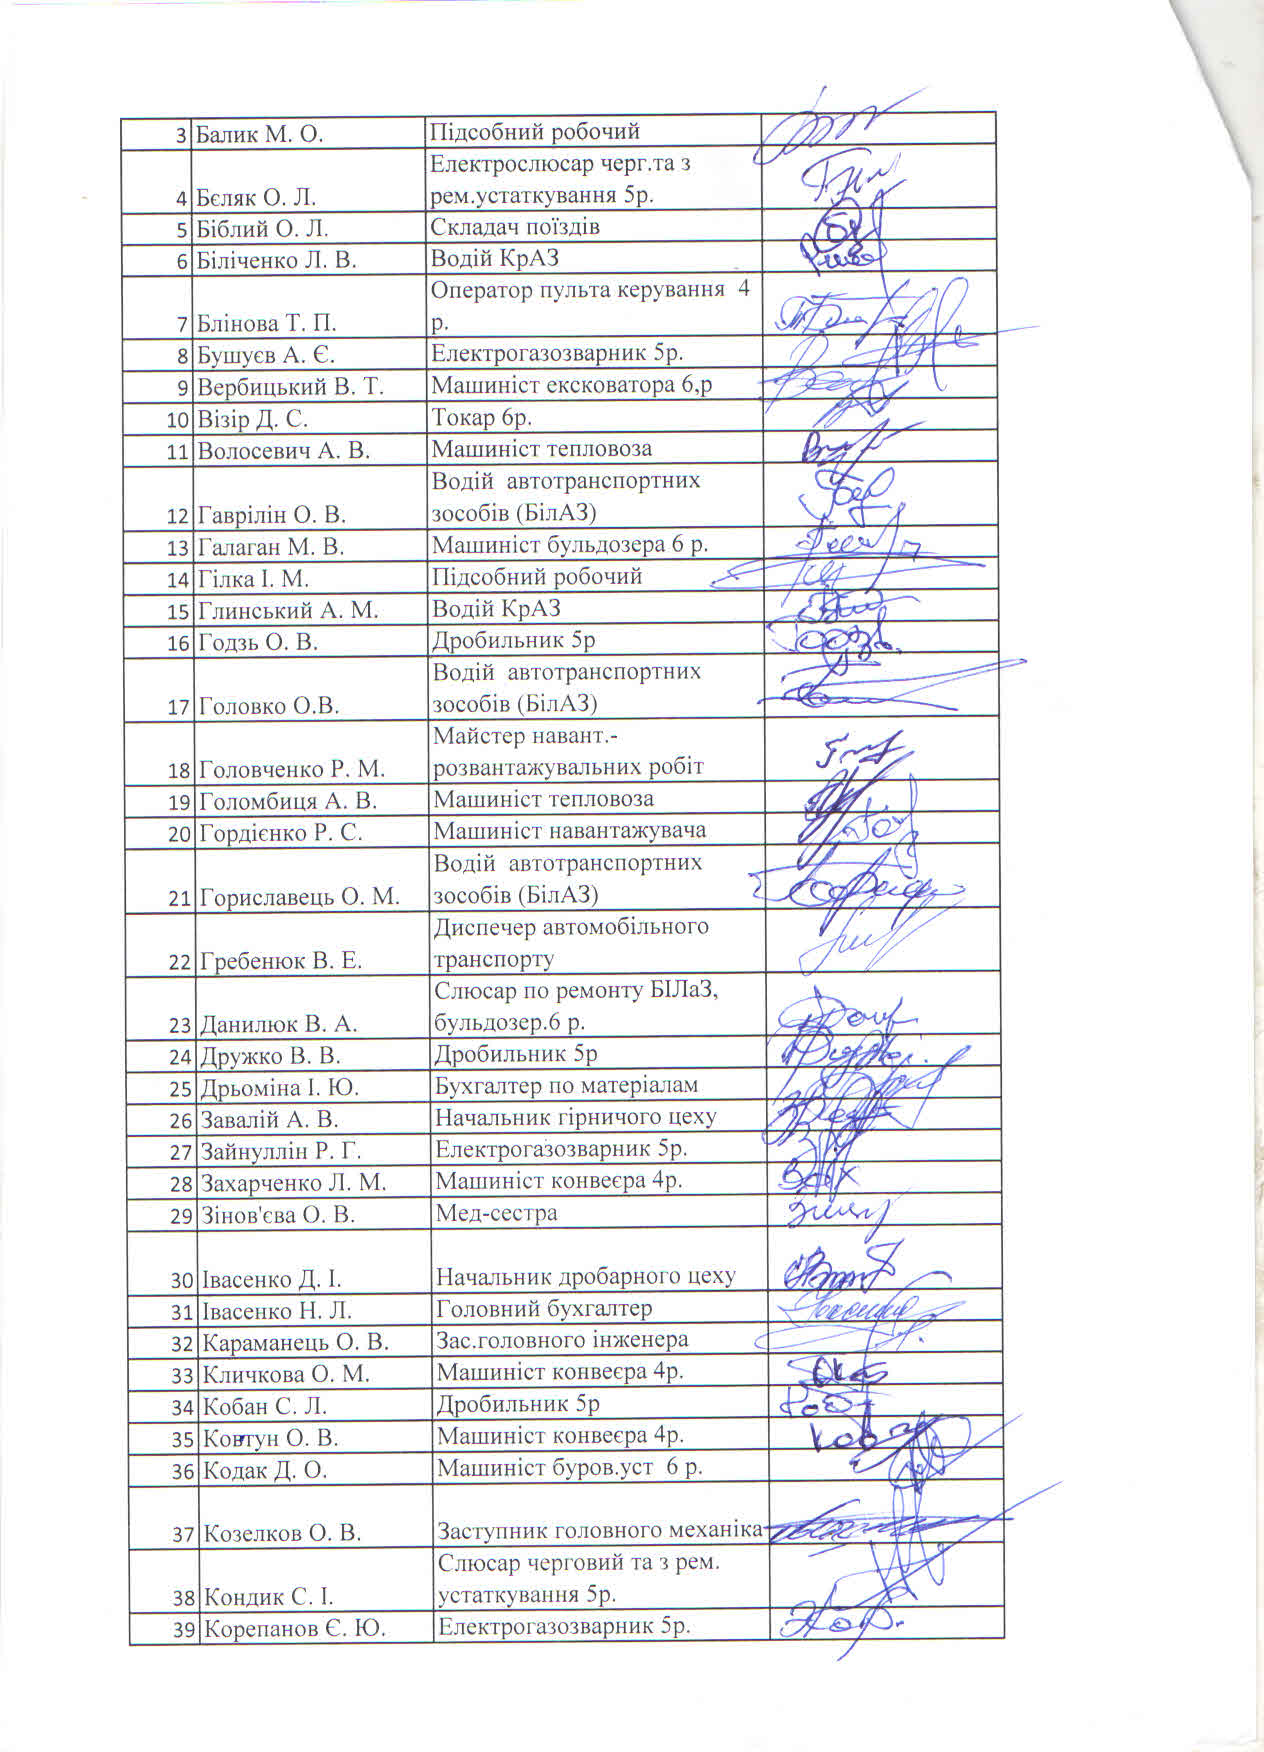 3 Балик М. О. Підсобний робочий
Електрослюсар черг.та з
4 Бєляк О. Л. рем.устаткування 5р.
5 Біблий О. Л. Складач поїздів
6 Біліченко Л. В. Водій КрАЗ
Оператор пульта керування 4
7 Блінова Т. П. р.
8 Бушуєв А. Є. Електрогазозварник 5р.
9 Вербицький В. Т. Машиніст ексковатора 6,р
10 Візір Д. С. Токар 6р.
11 Волосевич А. В. Машиніст тепловоза
Водій автотранспортних
12 Гаврілін О. В. зособів (БілАЗ)
13 Галаган М. В. Машиніст бульдозера 6 р.
14 Гілка І. М. Підсобний робочий
15 Глинський А. М. Водій КрАЗ
16 Годзь О. В. Дробильник 5р
Водій автотранспортних
17 Головко О.В. зособів (БілАЗ)
Майстер навант.-
18 Головченко Р. М. розвантажувальних робіт
19 Голомбиця А. В. Машиніст тепловоза
20 Гордієнко Р. С. Машиніст навантажувача
Водій автотранспортних
21 Гориславець О. М. зособів (БілАЗ)
Диспечер автомобільного
22 Гребенюк В. Е. транспорту
Слюсар по ремонту БІЛаЗ,
23 Данилюк В. А. бульдозер.6 р.
24 Дружко В. В. Дробильник 5р
25 Дрьоміна І. Ю. Бухгалтер по матеріалам
26 Завалій А. В. Начальник гірничого цеху
27 Зайнуллін Р. Г. Електрогазозварник 5р.
28 Захарченко Л. М. Машиніст конвеєра 4р.
29 Зінов'єва О. В. Мед-сестра
30 Івасенко Д. І. Начальник дробарного цеху
31 Івасенко Н. Л. Головний бухгалтер
32 Караманець О. В. Зас.головного інженера
33 Кличкова О. М. Машиніст конвеєра 4р.
34 Кобан С. Л. Дробильник 5р
35 Ковтун О. В. Машиніст конвеєра 4р.
36 Кодак Д. О. Машиніст буров.уст 6 р.
37 Козелков О. В. Заступник головного механіка
Слюсар черговий та з рем.
38 Кондик С. І. устаткування 5р.
39 Корепанов Є. Ю. Електрогазозварник 5р.